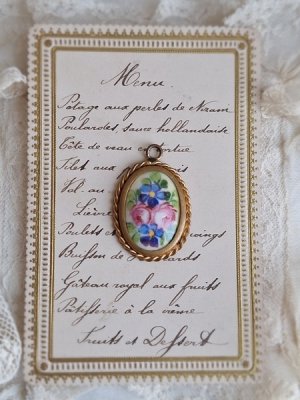 Menu
Potage aux perles de Nizam
Poulardes, sauce hollandaise
Côte de veau en tortue
Filet aux
Vol. au
Lièvre
Poulets
Buisson de
Gâteau royal aux fruits
Pâtisserie à la crème
Fruits et Dessert